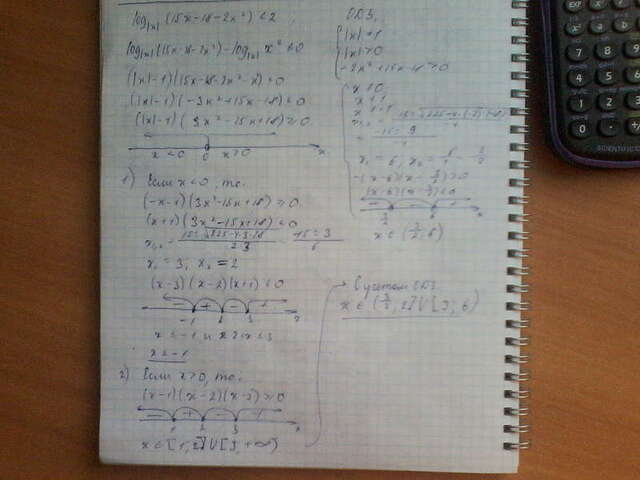 log|x| (15x-18-2x²) ≤ 2
log|x| (15x-18-2x²) - log|x| x² ≤ 0
(|x|-1)(15x-18-2x²-x²) ≤ 0
(|x|-1)(-3x²+15x-18) ≤ 0
(|x|-1)(3x²-15x+18) ≥ 0
x<0 0 x>0 x
1) Если x<0, то:
(-x-1)(3x²-15x+18) ≥ 0
(x+1)(3x²-15x+18) ≤ 0
x₁ = 3; x₂ = 2
(x-3)(x-2)(x+1) ≤ 0
- + - +
-1 2 3 x
x ≤ -1 и 2 ≤ x ≤ 3
x ≤ -1
2) Если x>0, то:
(x-1)(x-2)(x-3) ≥ 0
- + - +
1 2 3 x
x ∈ [1; 2] ∪ [3; +∞)
ОДЗ:
|x| ≠ 1
|x| > 0
-2x²+15x-18 > 0
x ≠ 0
x ≠ 1
x ≠ -1
x₁ = 6, x₂ = 6/4 = 3/2
-(x-6)(x-3/2) > 0
(x-6)(x-3/2) < 0
3/2 6 x
x ∈ (3/2; 6)
С учетом ОДЗ
x ∈ (3/2; 2] ∪ [3; 6)
7 8 9
4 5 6
1 2 3
0